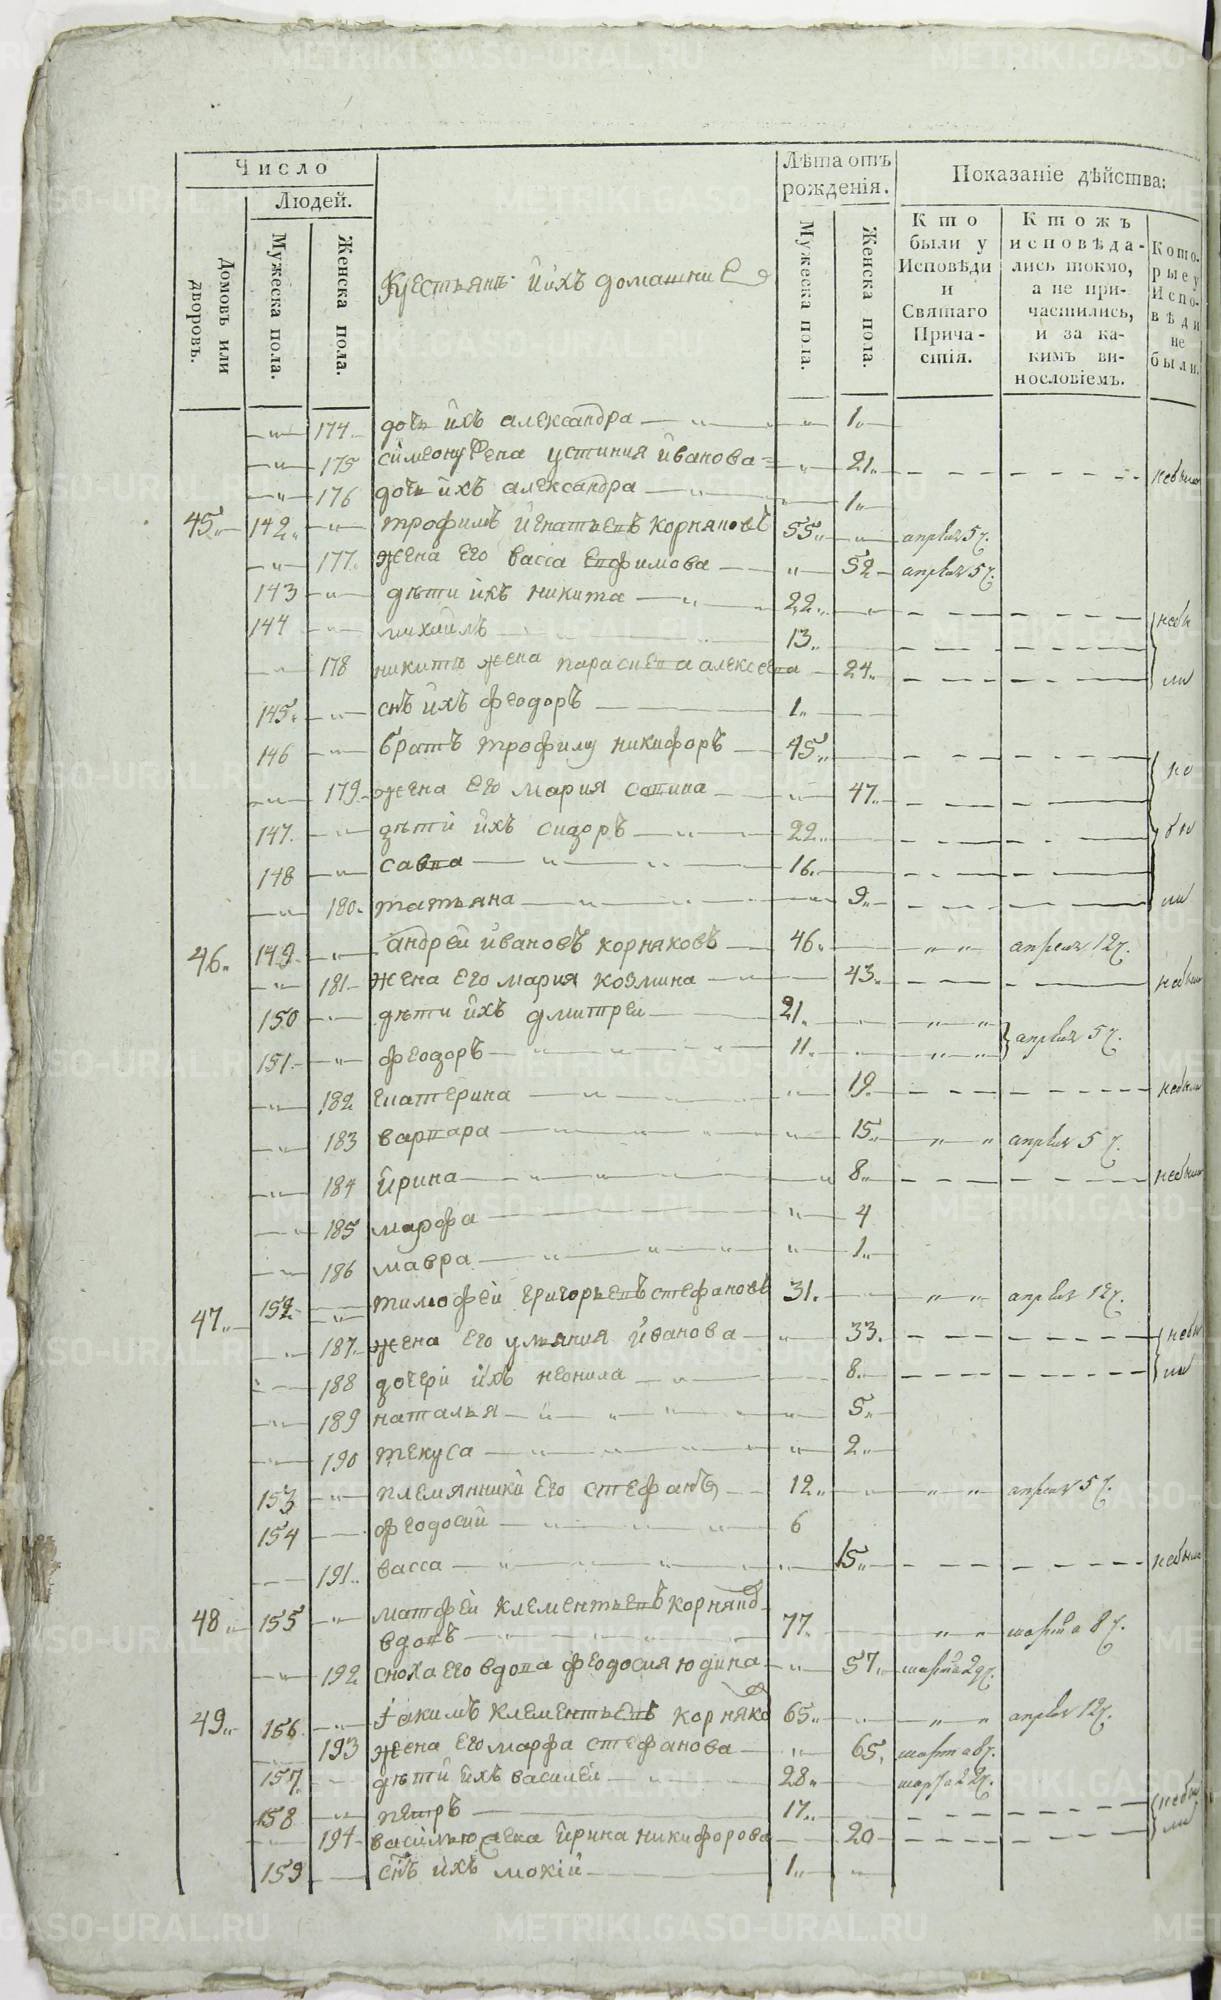 Число
Людей.
Домовъ или дворовъ.
Мужеска пола.
Женска пола.
Крестьянъ ихъ домашние
Лѣта отъ рожденія.
Мужеска пола.
Женска пола.
Показаніе дѣйства:
Кто были у Исповѣди и Святаго Причастія.
Ктожъ исповѣдались токмо, а не причастились, и за какимъ винословіемъ.
Которые у Исповѣди не были.
174 дочь ихъ александра 1
175 симеону жена устиния иванова 21 небыли
176 дочь ихъ александра 1
45 142 трофимъ игнатьевъ корняковъ 55 апреля 5
177 жена его васса евфимова 52 апреля 5
143 дѣти ихъ никита 22 небы
144 михаилъ 13
178 никиты жена параскева алексеева 24 ли
145 снъ ихъ феодоръ 1
146 братъ трофиму никифоръ 45 не
179 жена его мария савина 47
147 дѣти ихъ сидоръ 22 бы
148 савва 16
180 татьяна 9 ли
46 149 андрей ивановъ корняковъ 46 апреля 12
181 жена его мария козмина 43 небыли
150 дѣти ихъ дмитрей 21 апреля 5
151 феодоръ 11
182 екатерина 19 небыли
183 варвара 15 апреля 5
184 ирина 8 небыли
185 марфа 4
186 мавра 1
47 152 тимофей григорьевъ стефановъ 31 апреля 12
187 жена его ульяния иванова 33 небы
188 дочери ихъ неонила 8 ли
189 наталья 5
190 текуса 2
153 племянники его стефанъ 12 апреля 5
154 феодосий 6
191 васса 15 небыли
48 155 матфей клементьевъ корняков
вдовъ 77 марта 8
192 сноха его вдова феодосия юдина 57 марта 29
49 156 Іакимъ клементьевъ корняков 65 апреля 12
193 жена его марфа стефанова 65 марта 8
157 дѣти ихъ василей 28 марта 22
158 петръ 17 небы
194 василью жена ирина никифорова 20 ли
159 снъ ихъ мокій 1
METRIKI.GASO-URAL.RU